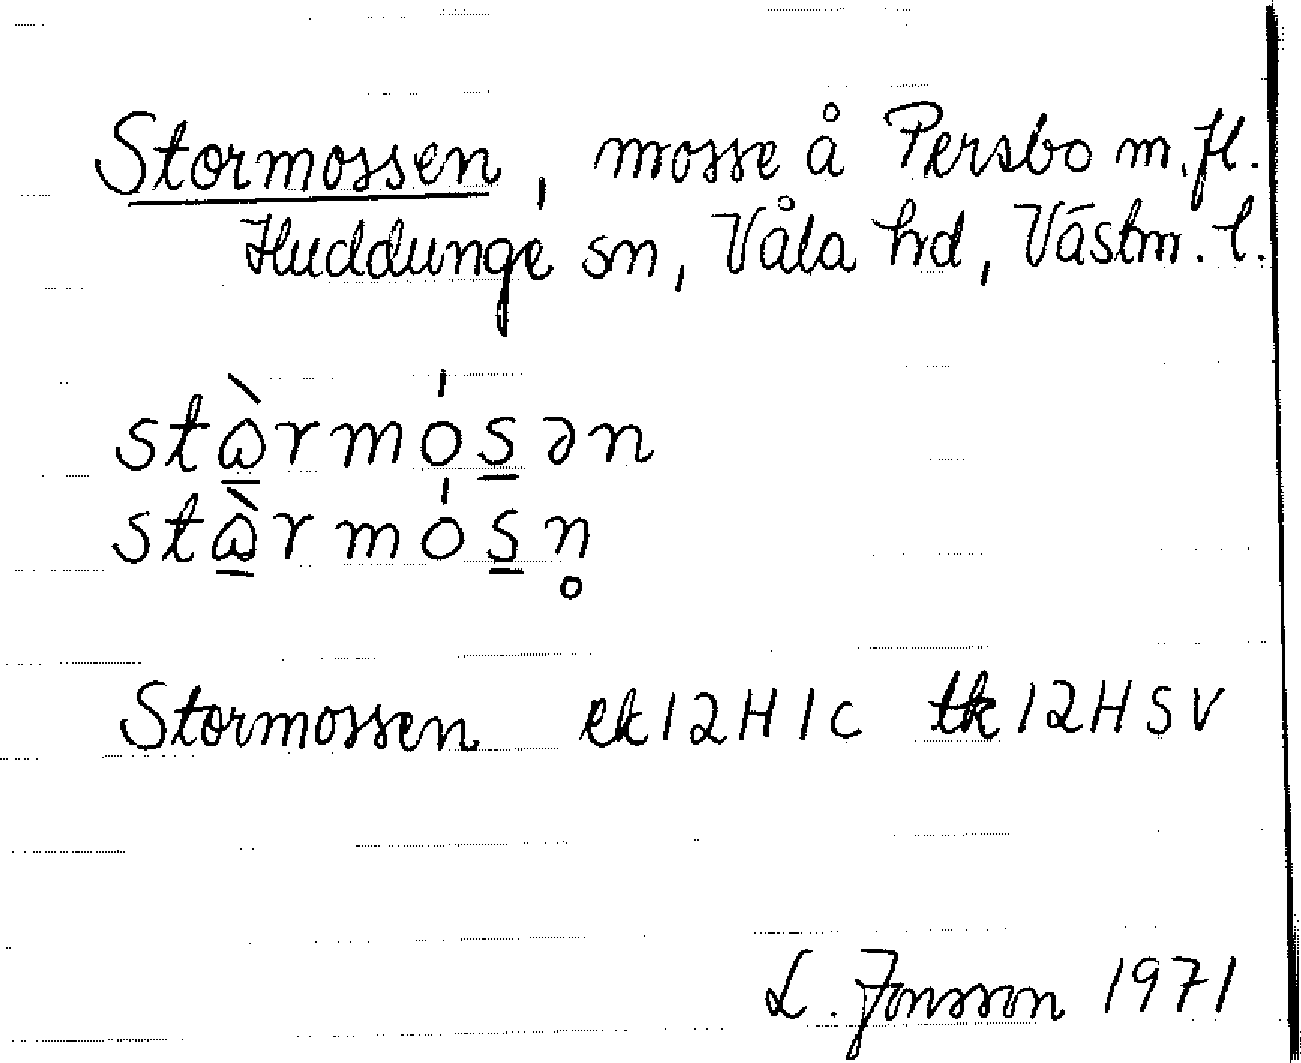 Stormossen, mosse å Persbo m.fl.
Huddunge sn, Våla hd, Västm. l.
stɷ̲̀rmós̲ən
stɷ̲̀rmós̲n̥
Stormossen ek 12H1c tk 12HSV
L. Jonsson 1971